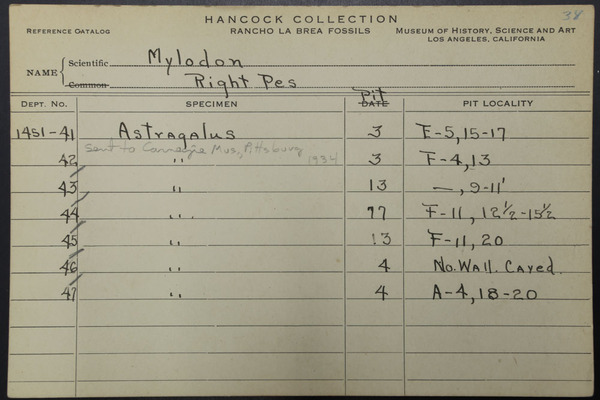 38
HANCOCK COLLECTION
REFERENCE CATALOG RANCHO LA BREA FOSSILS MUSEUM OF HISTORY, SCIENCE AND ART
LOS ANGELES, CALIFORNIA
NAME Scientific Mylodon
Common Right Pes
Pit
DEPT. NO. SPECIMEN DATE PIT LOCALITY
1451-41 Astragalus 3 E-5, 15-17
sent to Carnegie Mus, Pittsburg 1934
42 " 3 F-4, 13
43 " 13 —, 9-11'
44 " 77 F-11, 12½-15½
45 " 13 F-11, 20
46 " 4 No. Wall. Caved.
47 " 4 A-4, 18-20